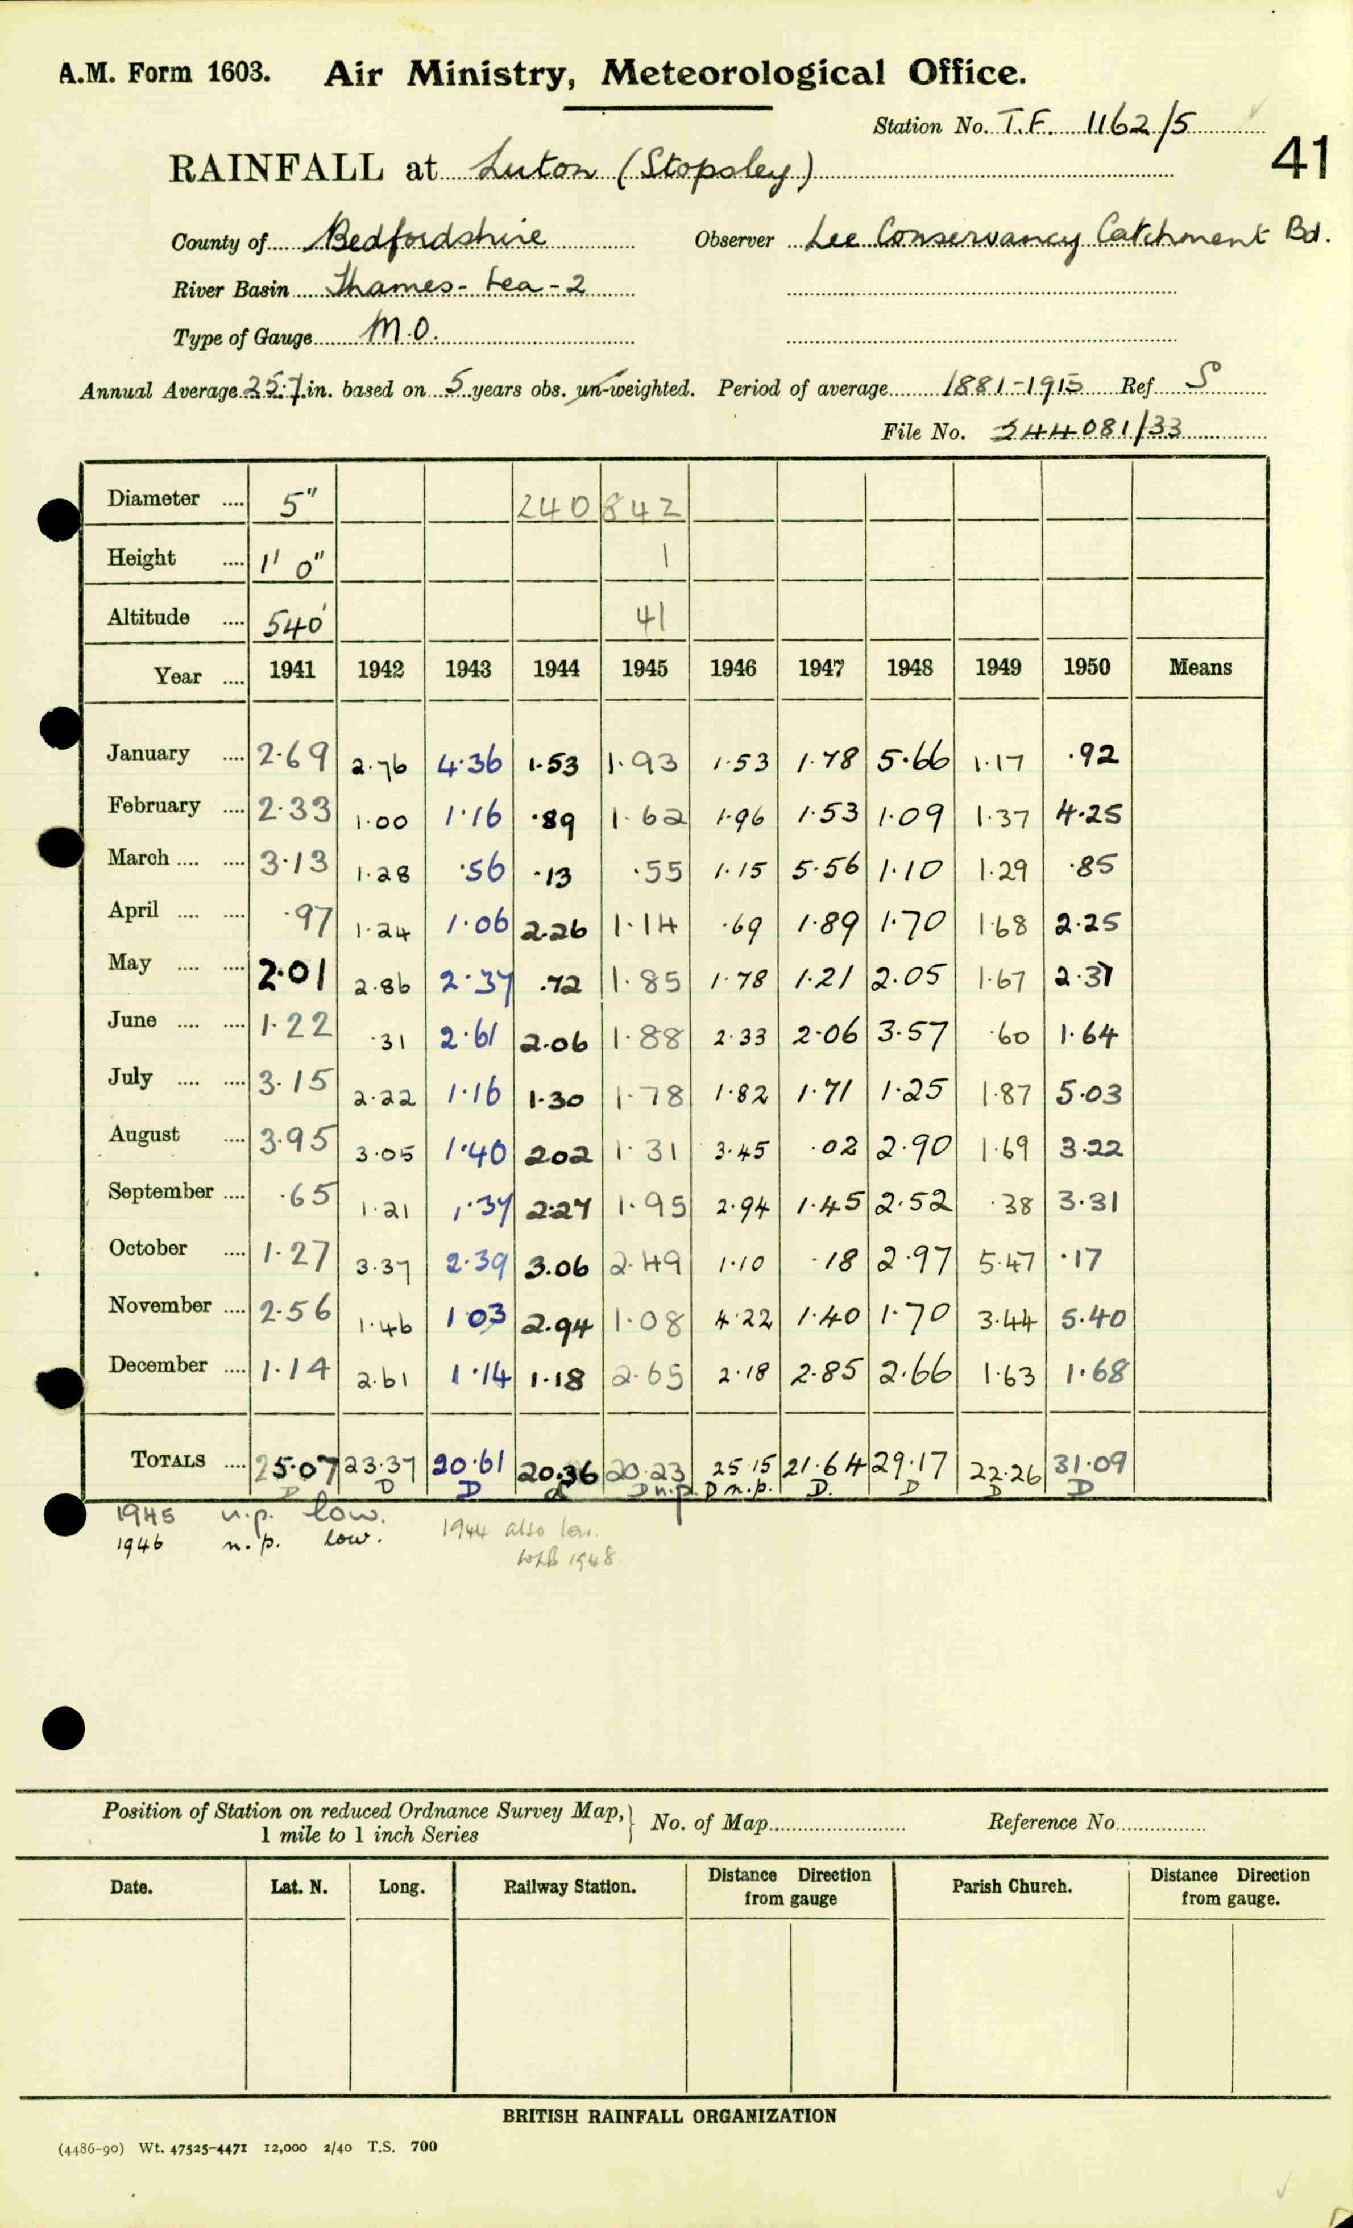 A.M. Form 1603. Air Ministry, Meteorological Office.
Station No. T.F. 1162/5
41
RAINFALL at Luton (Stopsley)
County of Bedfordshire Observer Lee Conservancy Catchment Bd.
River Basin Thames - Lea - 2
Type of Gauge M.O.
Annual Average 25.7 in. based on 5 years obs. un-weighted. Period of average 1881-1915 Ref. S
File No. 244081/33
Diameter .... 5" 240 842
Height .... 1' 0" 1
Altitude .... 540' 41
Year .... 1941 1942 1943 1944 1945 1946 1947 1948 1949 1950 Means
January .... 2.69 2.76 4.36 1.53 1.93 1.53 1.78 5.66 1.17 .92
February .... 2.33 1.00 1.16 .89 1.62 1.96 1.53 1.09 1.37 4.25
March .... .... 3.13 1.28 .56 .13 .55 1.15 5.56 1.10 1.29 .85
April .... .... .97 1.24 1.06 2.26 1.14 .69 1.89 1.70 1.68 2.25
May .... .... 2.01 2.86 2.37 .72 1.85 1.78 1.21 2.05 1.67 2.37
June .... .... 1.22 .31 2.61 2.06 1.88 2.33 2.06 3.57 .60 1.64
July .... .... 3.15 2.22 1.16 1.30 1.78 1.82 1.71 1.25 1.87 5.03
August .... 3.95 3.05 1.40 202 1.31 3.45 .02 2.90 1.69 3.22
September .... .65 1.21 1.37 2.27 1.95 2.94 1.45 2.52 .38 3.31
October .... 1.27 3.37 2.39 3.06 2.49 1.10 .18 2.97 5.47 .17
November .... 2.56 1.46 1 03 2.94 1.08 4.22 1.40 1.70 3.44 5.40
December .... 1.14 2.61 1.14 1.18 2.65 2.18 2.85 2.66 1.63 1.68
TOTALS .... 25.07 23.37 20.61 20.36 20.23 25.15 21.64 29.17 22.26 31.09
D D D d D n.p. D n.p. D. D D D
1945 n.p. low.
1946 n.p. low.
1944 also low.
1948
Position of Station on reduced Ordnance Survey Map, 1 mile to 1 inch Series } No. of Map Reference No.
Date. Lat. N. Long. Railway Station. Distance Direction from gauge Parish Church. Distance Direction from gauge.
BRITISH RAINFALL ORGANIZATION
(4486-90) Wt. 47525-4471 12,000 2/40 T.S. 700